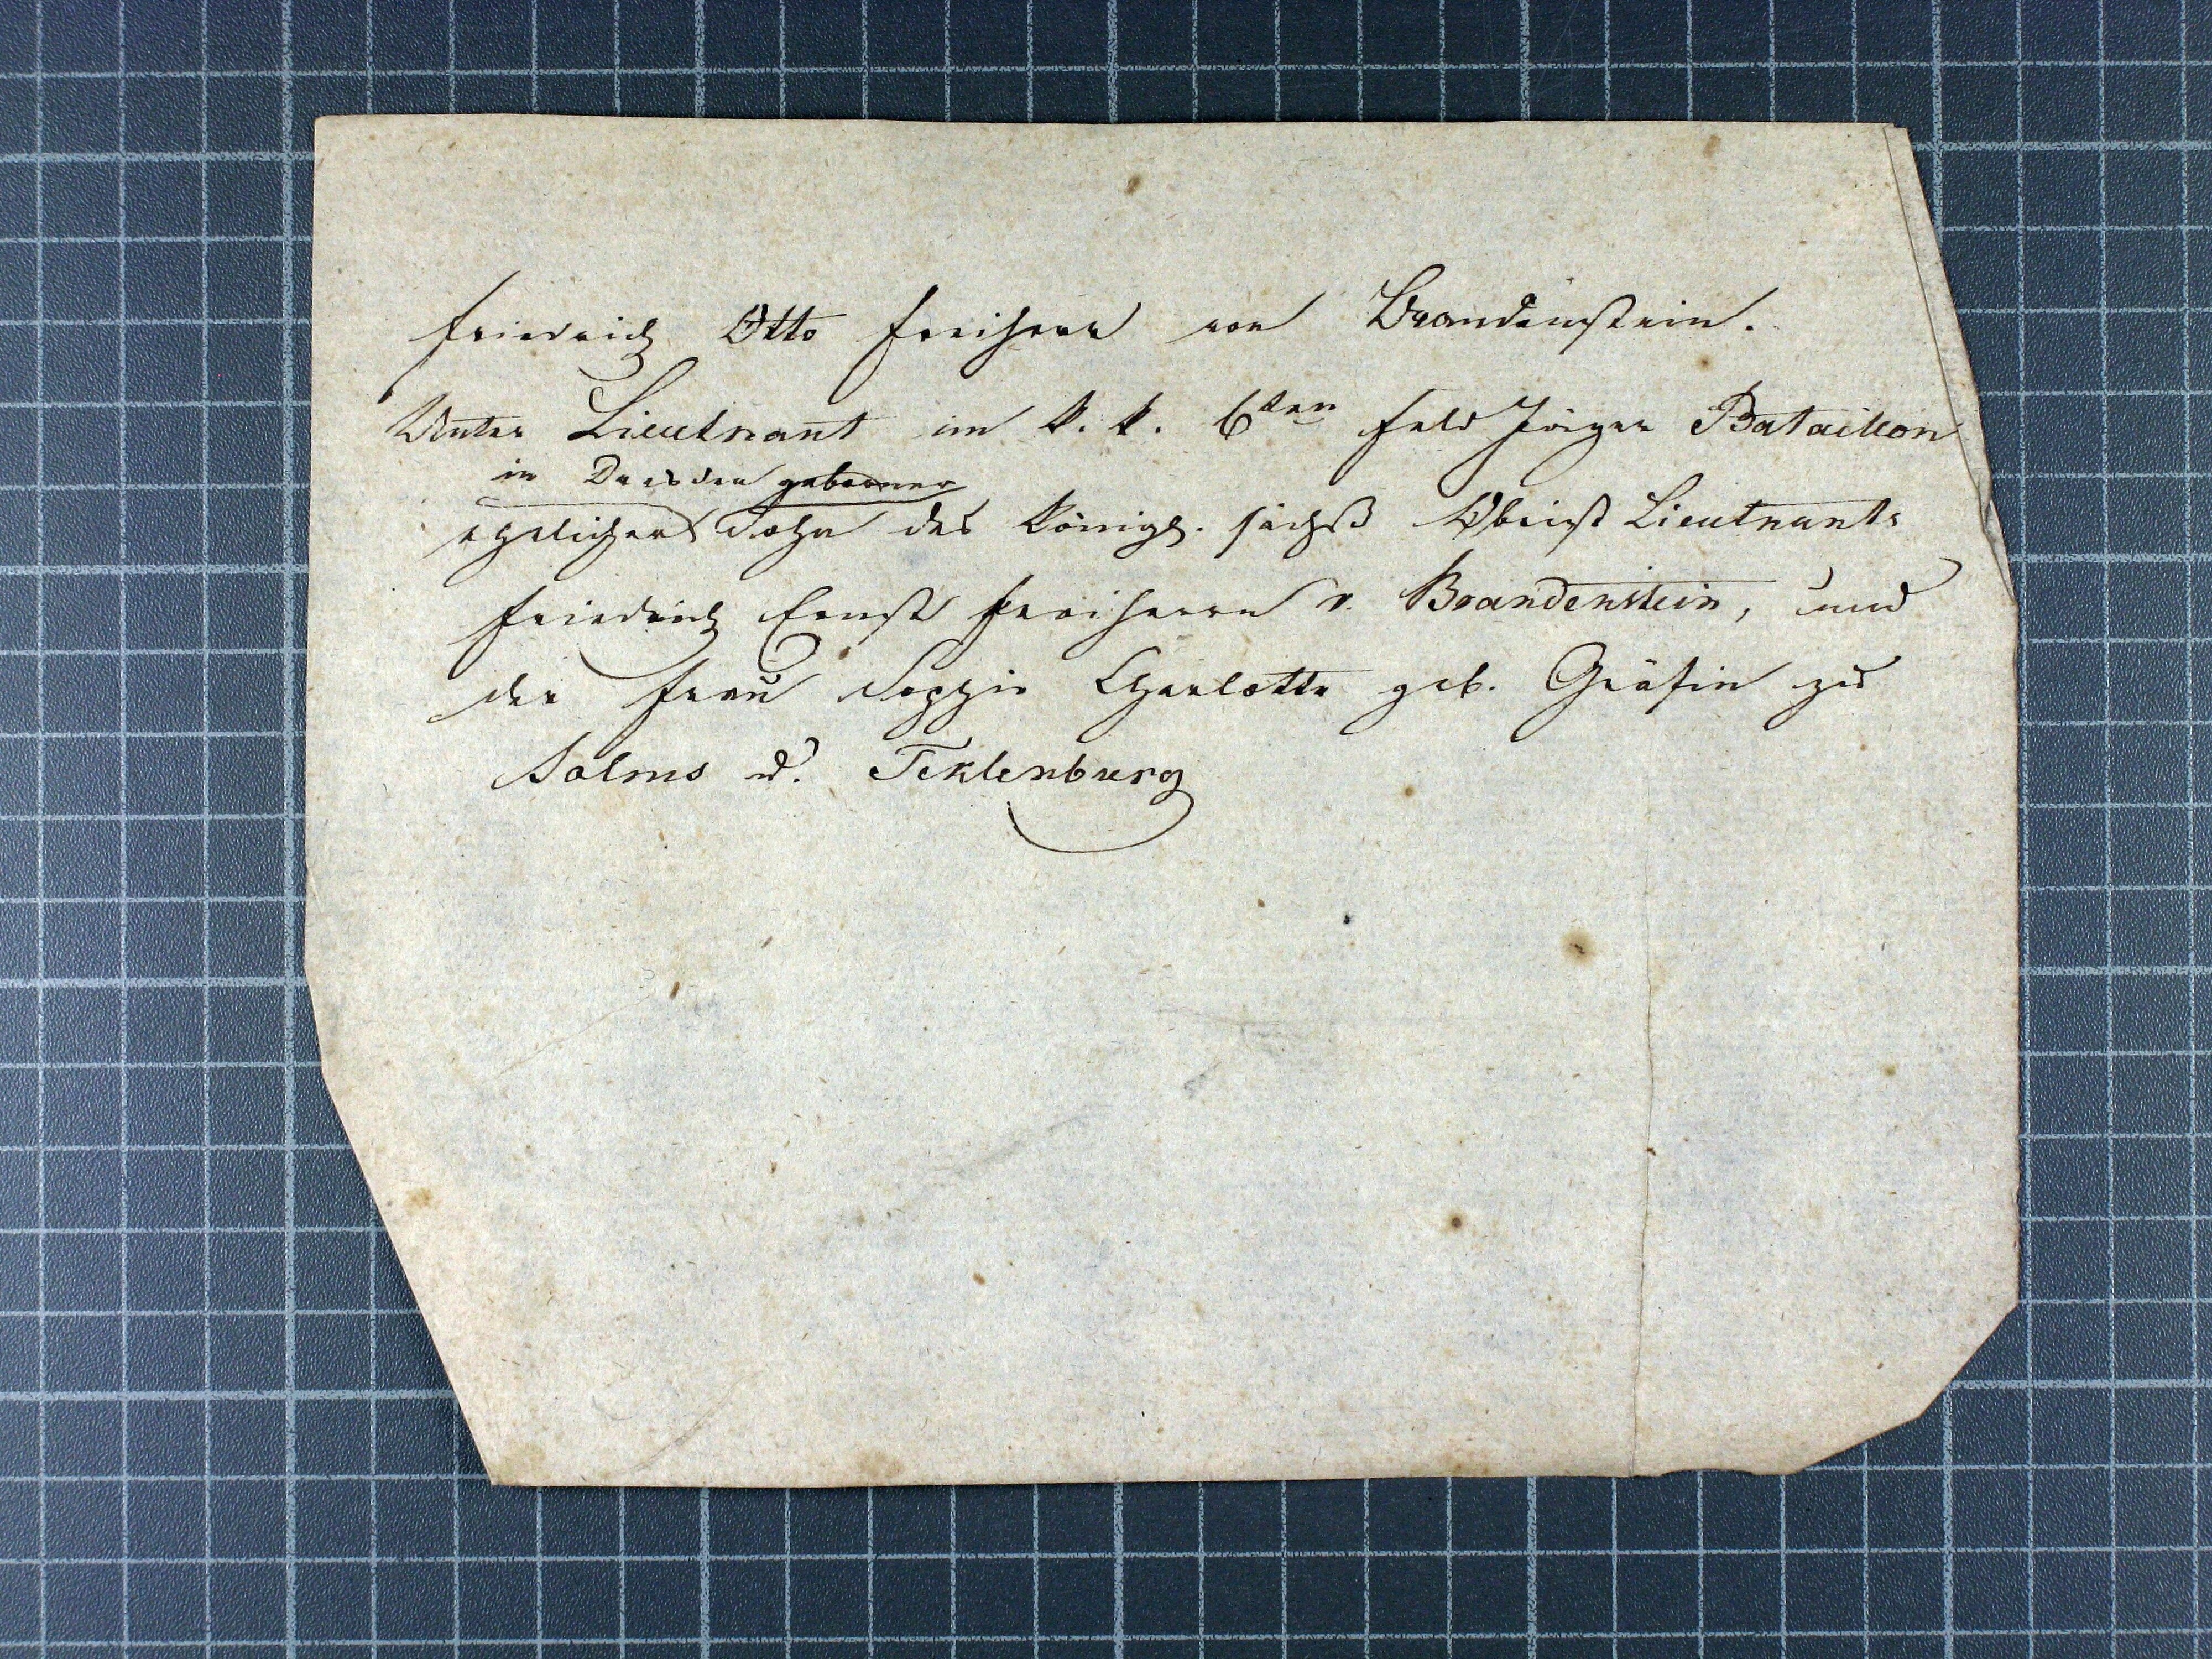 Friedrich Otto Freiherr von Brandenstein.
Unter Lieutnant im k. k. 6ten Feld Jäger Bataillon
in Dresden geborner
ehelicher Sohn des Königl. sächß Obrist Lieutnants
Friedrich Ernst Freiherrn v. Brandenstein, und
der Frau Sophie Charlotte geb. Gräfin zu
Solms u. Teklenburg